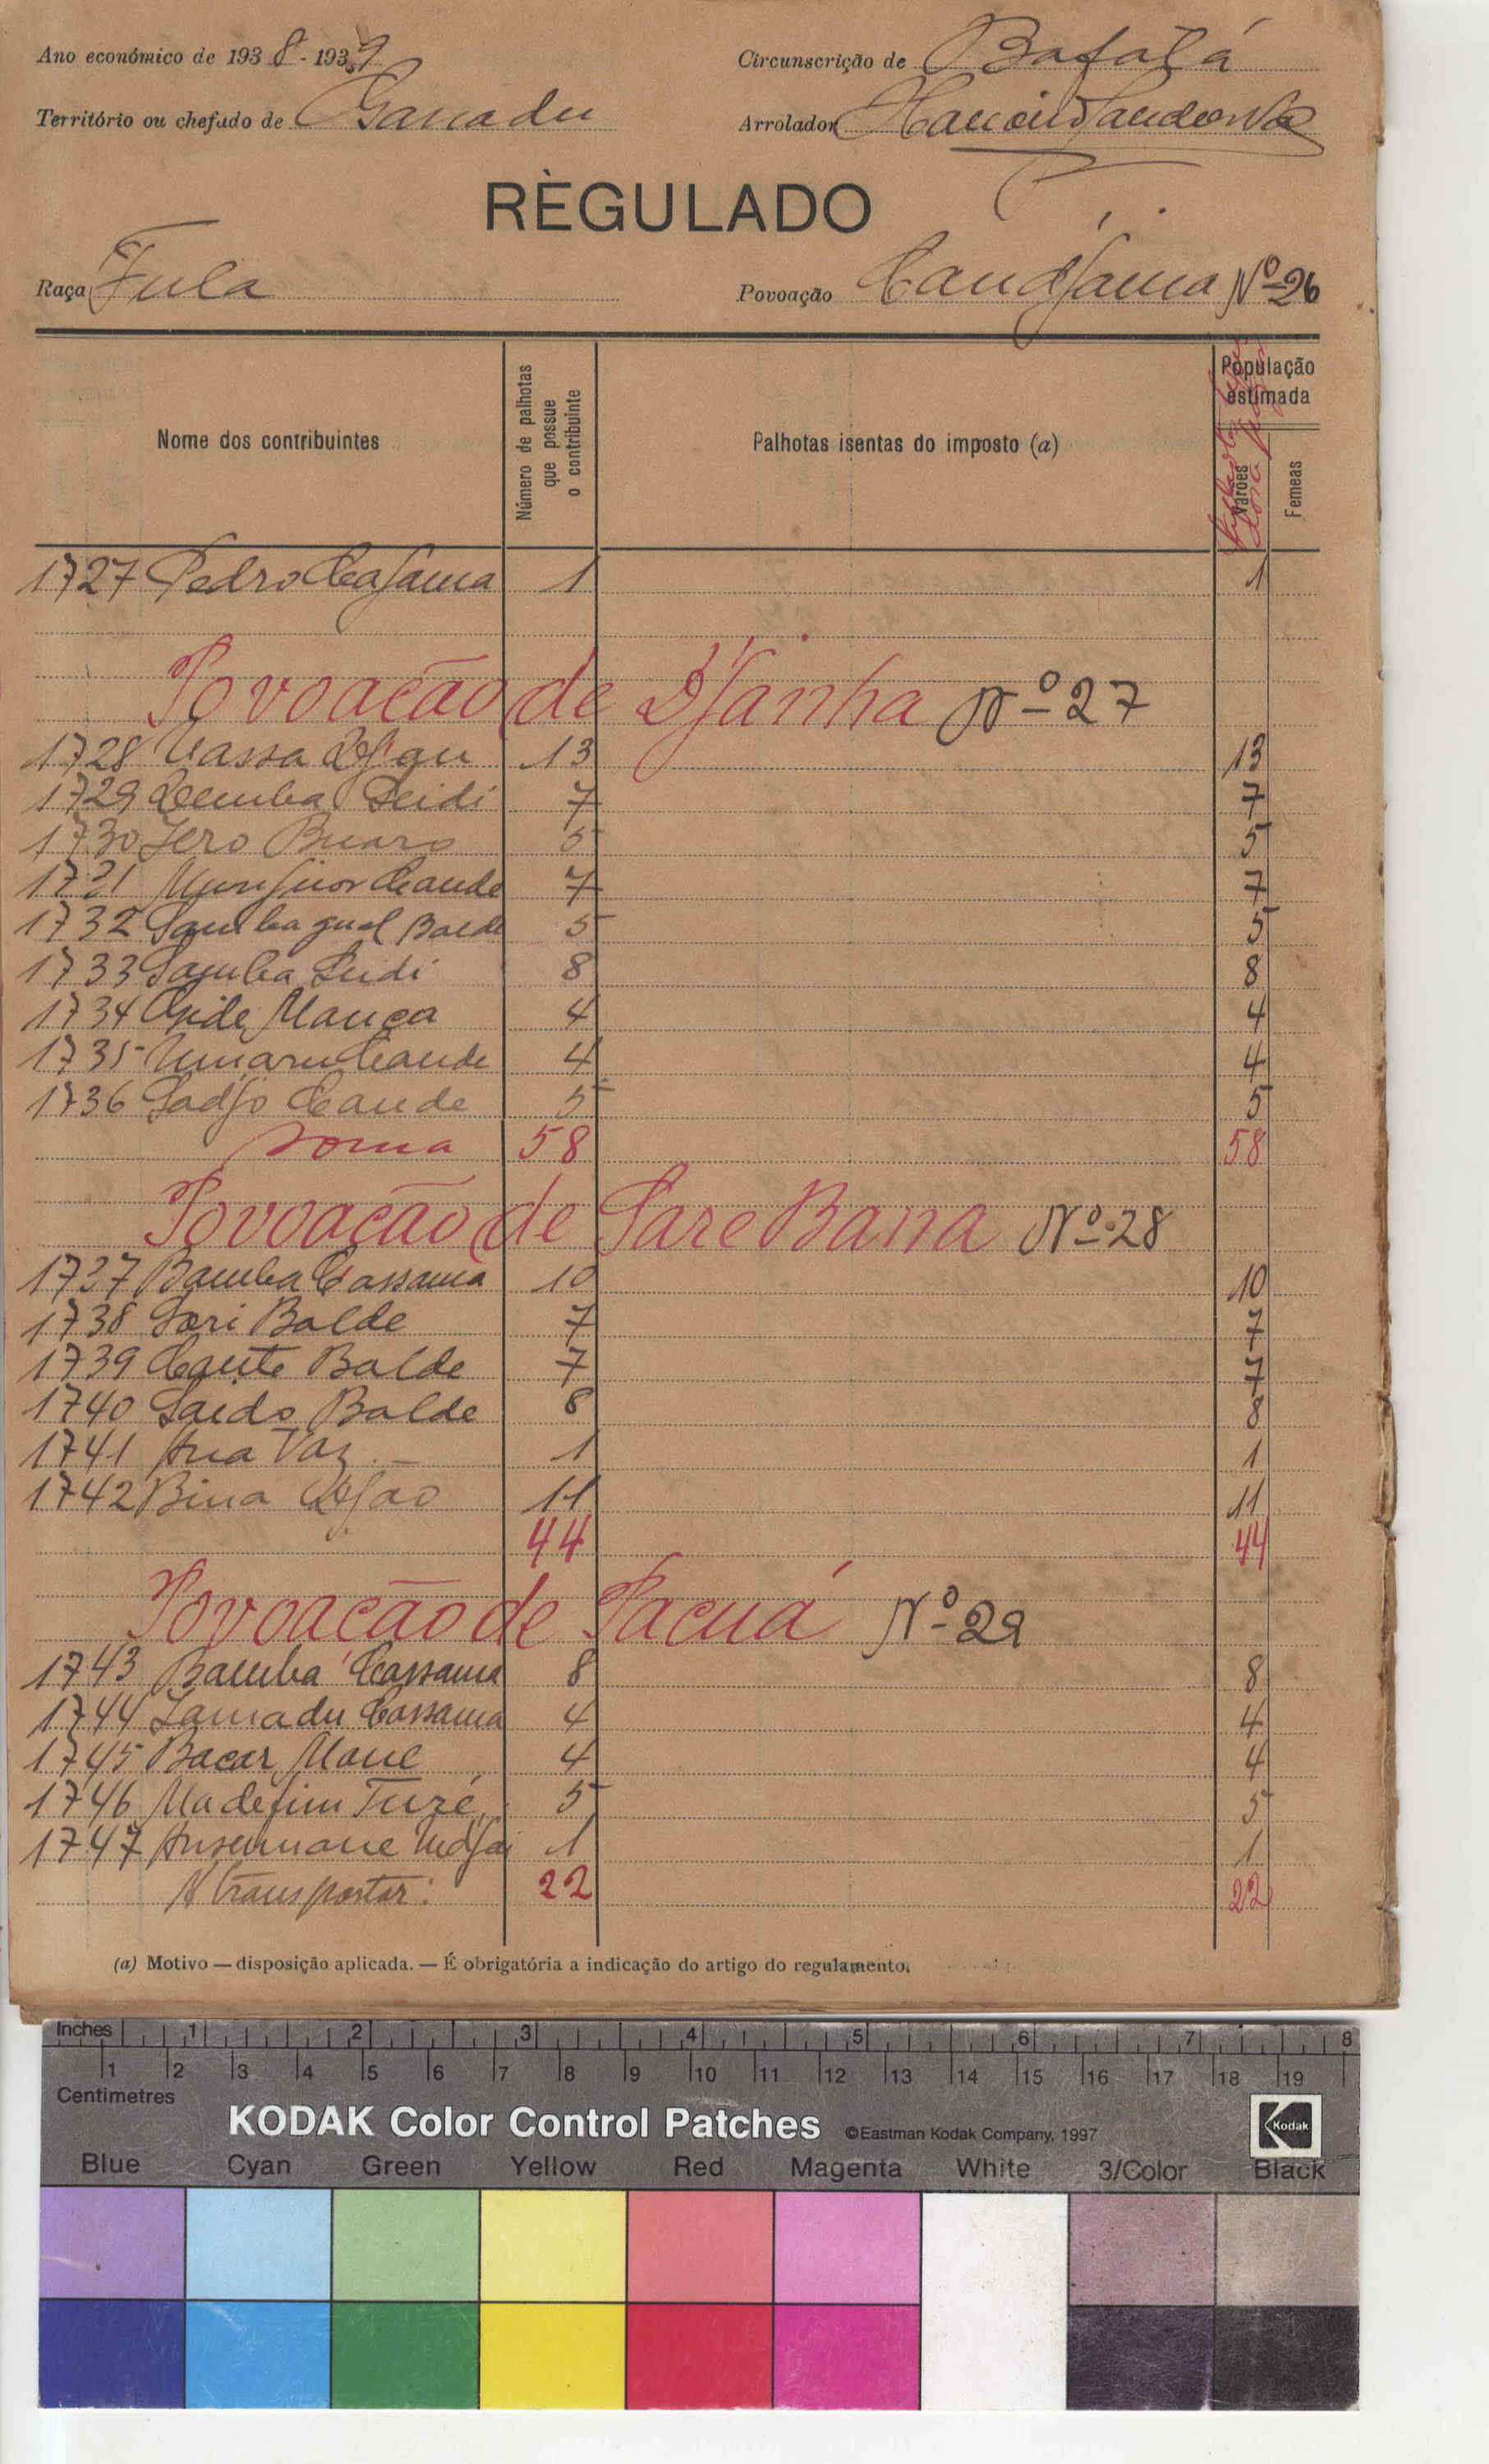 Ano económico de 1938-1939
Circunscrição de Bafatá
Território ou chefado de Ganadu
Arrolador
RÈGULADO
Raça Fula
Povoação Candjama Nº 26
Nome dos contribuintes
Número de palhotas que possue o contribuinte
Palhotas isentas do imposto (a)
População estimada
Varões
Femeas
1727 Pedro Casama 1 1
Povoação de Djanha Nº 27
1728 Vassa Djau 13 13
1729 Demba Seidi 7 7
1730 Jero Buaro 5 5
1731 Cande 7 7
1732 Samba guel Balde 5 5
1733 Samba Seidi 8 8
1734 Mança 4 4
1735 Umaru Cande 4 4
1736 Sadjo Cande 5 5
Soma 58 58
Povoação de Sare Bana Nº 28
1737 Bamba Cassama 10 10
1738 Sori Balde 7 7
1739 Caute Balde 7 7
1740 Saido Balde 8 8
1741 Ana Vaz 1 1
1742 Bina Djao 11 11
44 44
Povoação de Pacuá Nº 29
1743 Bamba Cassama 8 8
1744 Lamadu Cassama 4 4
1745 Bacar Mane 4 4
1746 Turé 5 5
1747 Ansumane 1 1
A transportar: 22 22
(a) Motivo — disposição aplicada. — É obrigatória a indicação do artigo do regulamento.
Inches 1 2 3 4 5 6 7 8
1 2 3 4 5 6 7 8 9 10 11 12 13 14 15 16 17 18 19
Centimetres
KODAK Color Control Patches ©Eastman Kodak Company, 1997 Kodak
Blue Cyan Green Yellow Red Magenta White 3/Color Black